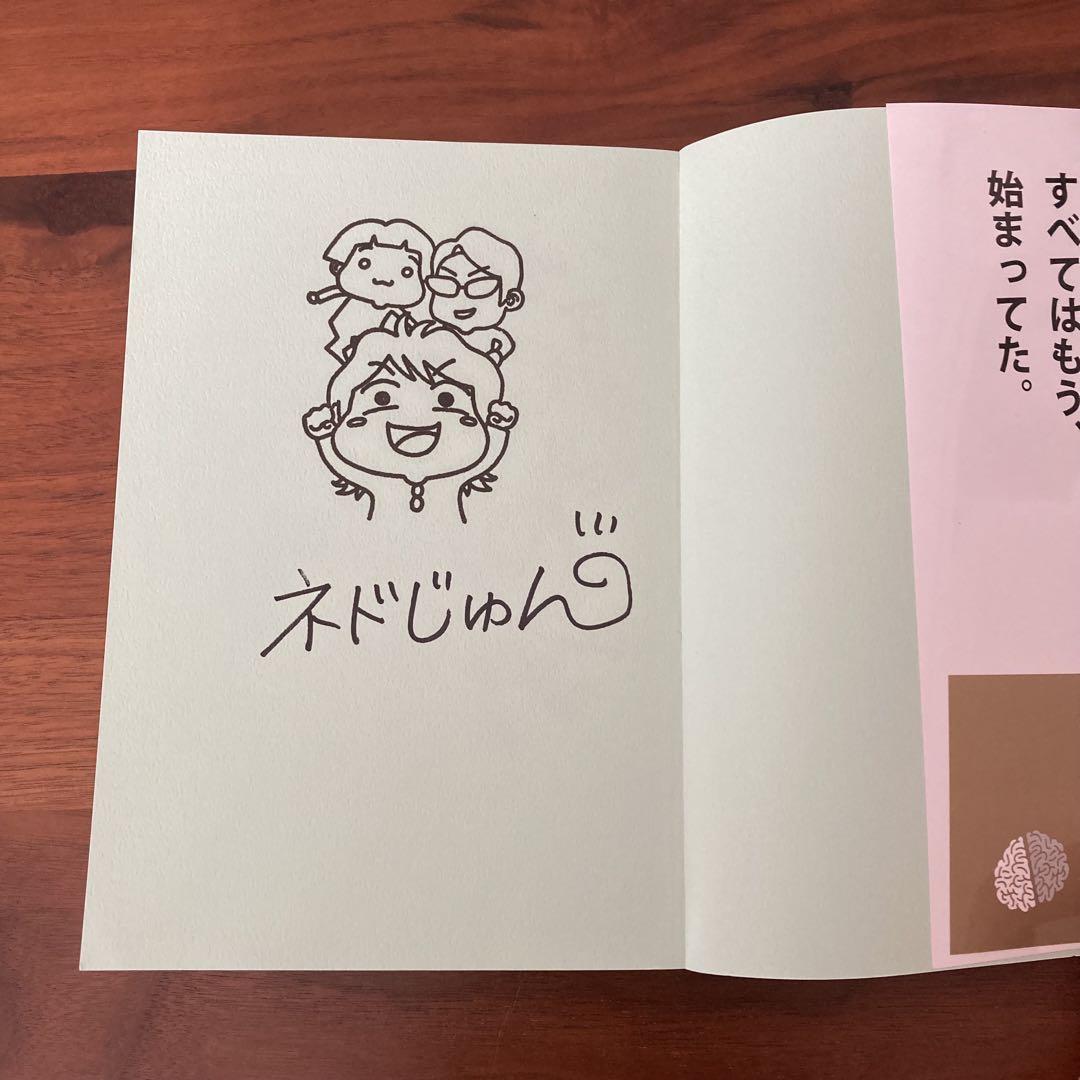 ネドじゅん
すべてはもう、
始まってた。